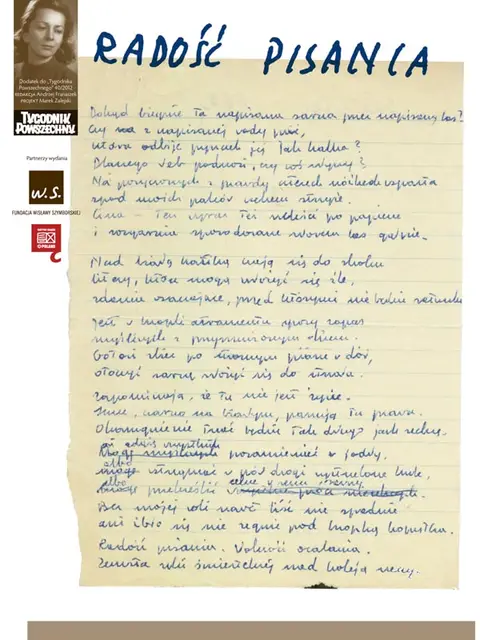 RADOŚĆ PISANIA
Dodatek do „Tygodnika
Powszechnego" 40/2012
REDAKCJA Andrzej Franaszek
PROJEKT Marek Zalejski
TYGODNIK
POWSZECHNY
Partnerzy wydania
w.S.
FUNDACJA WISŁAWY SZYMBORSKIEJ
Dokąd biegnie ta napisana sarna przez napisany las?
Czy z napisanej wody pić,
która odbije pyszczek jej jak kalka?
Dlaczego łeb podnosi, czy coś słyszy?
Na pożyczonych z prawdy czterech nóżkach wsparta
spod moich palców uchem strzyże.
Cisza – ten wyraz też szeleści po papierze
i rozgarnia spowodowane słowem las gałęzie.
Nad białą kartką czają się do skoku
litery, które mogą ułożyć się źle,
zdania osaczające, przed którymi nie będzie ratunku
Jest w kropli atramentu spory zapas
myśliwych z przymrużonym okiem,
gotowi zbiec po stromym piórze w dół,
otoczyć sarnę, złożyć się do strzału.
Zapominają, że tu nie jest życie.
Inne, czarno na białym, panują tu prawa.
Okamgnienie trwać będzie tak długo jak zechcę,
pozamieniać w
w pół drogi wystrzelone kule,
Bez mojej woli nawet liść nie spadnie
ani źdźbło się nie zegnie pod kropką kopytka.
Radość pisania. Możność utrwalania.
Zemsta ręki śmiertelnej